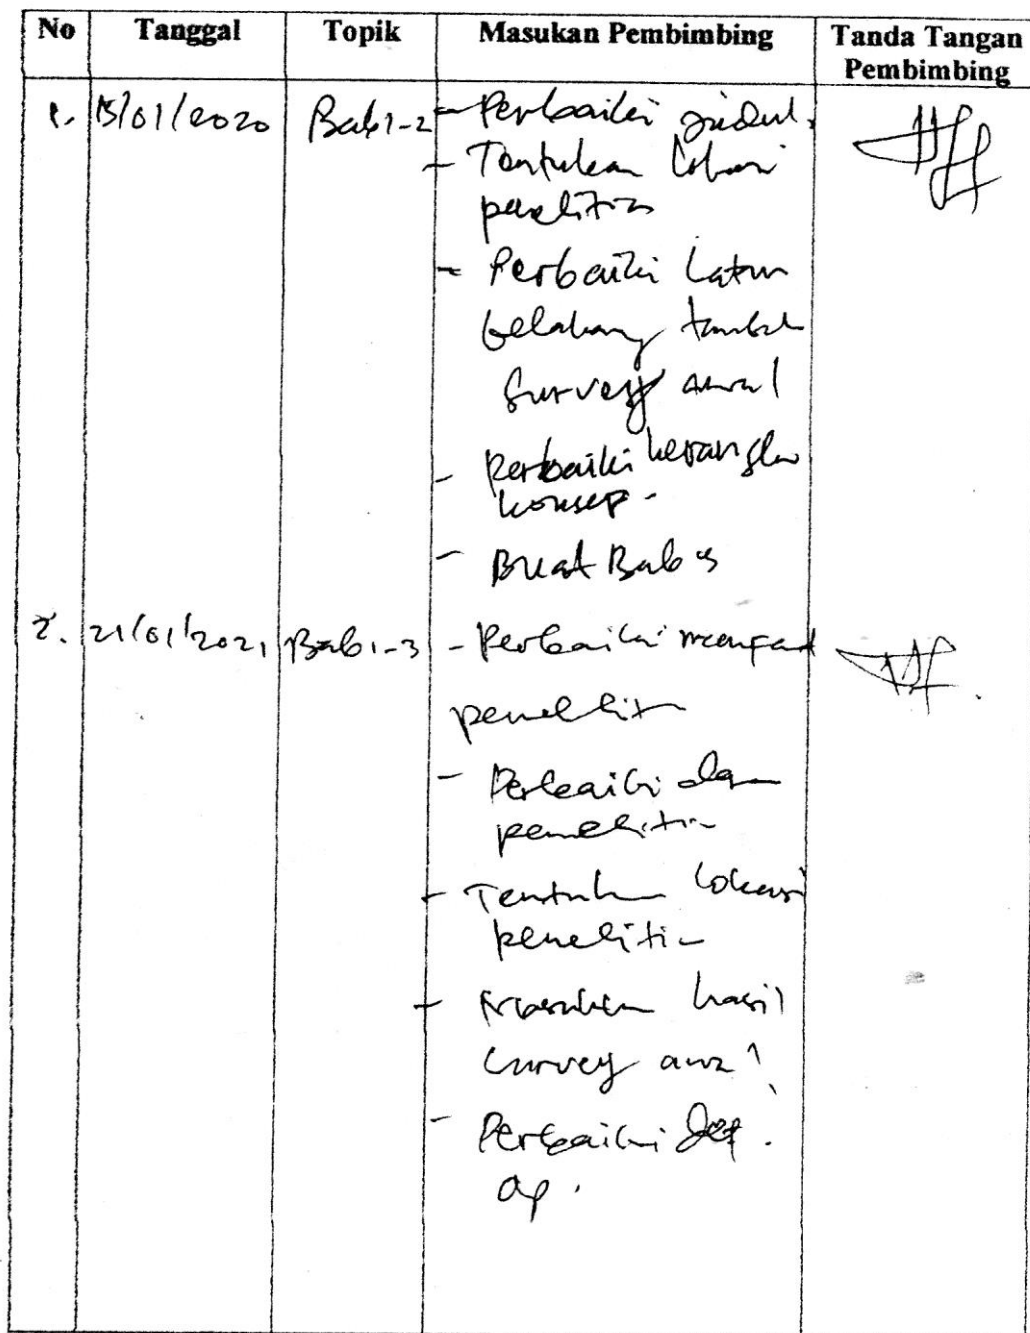 No Tanggal Topik Masukan Pembimbing Tanda Tangan Pembimbing
1. 15/01/2020 Bab 1-2 - Perbaiki judul.
- Tentukan lokasi
penelitian
- Perbaiki latar
belakang tambah
survey awal
- Perbaiki kerangka
konsep.
- Buat Bab 3
2. 21/01/2021 Bab 1-3 - Perbaiki manfaat
penelitian
- Perbaiki
penelitian
- Tentukan lokasi
penelitian
- Masukan hasil
survey awal
- Perbaiki def.
op.